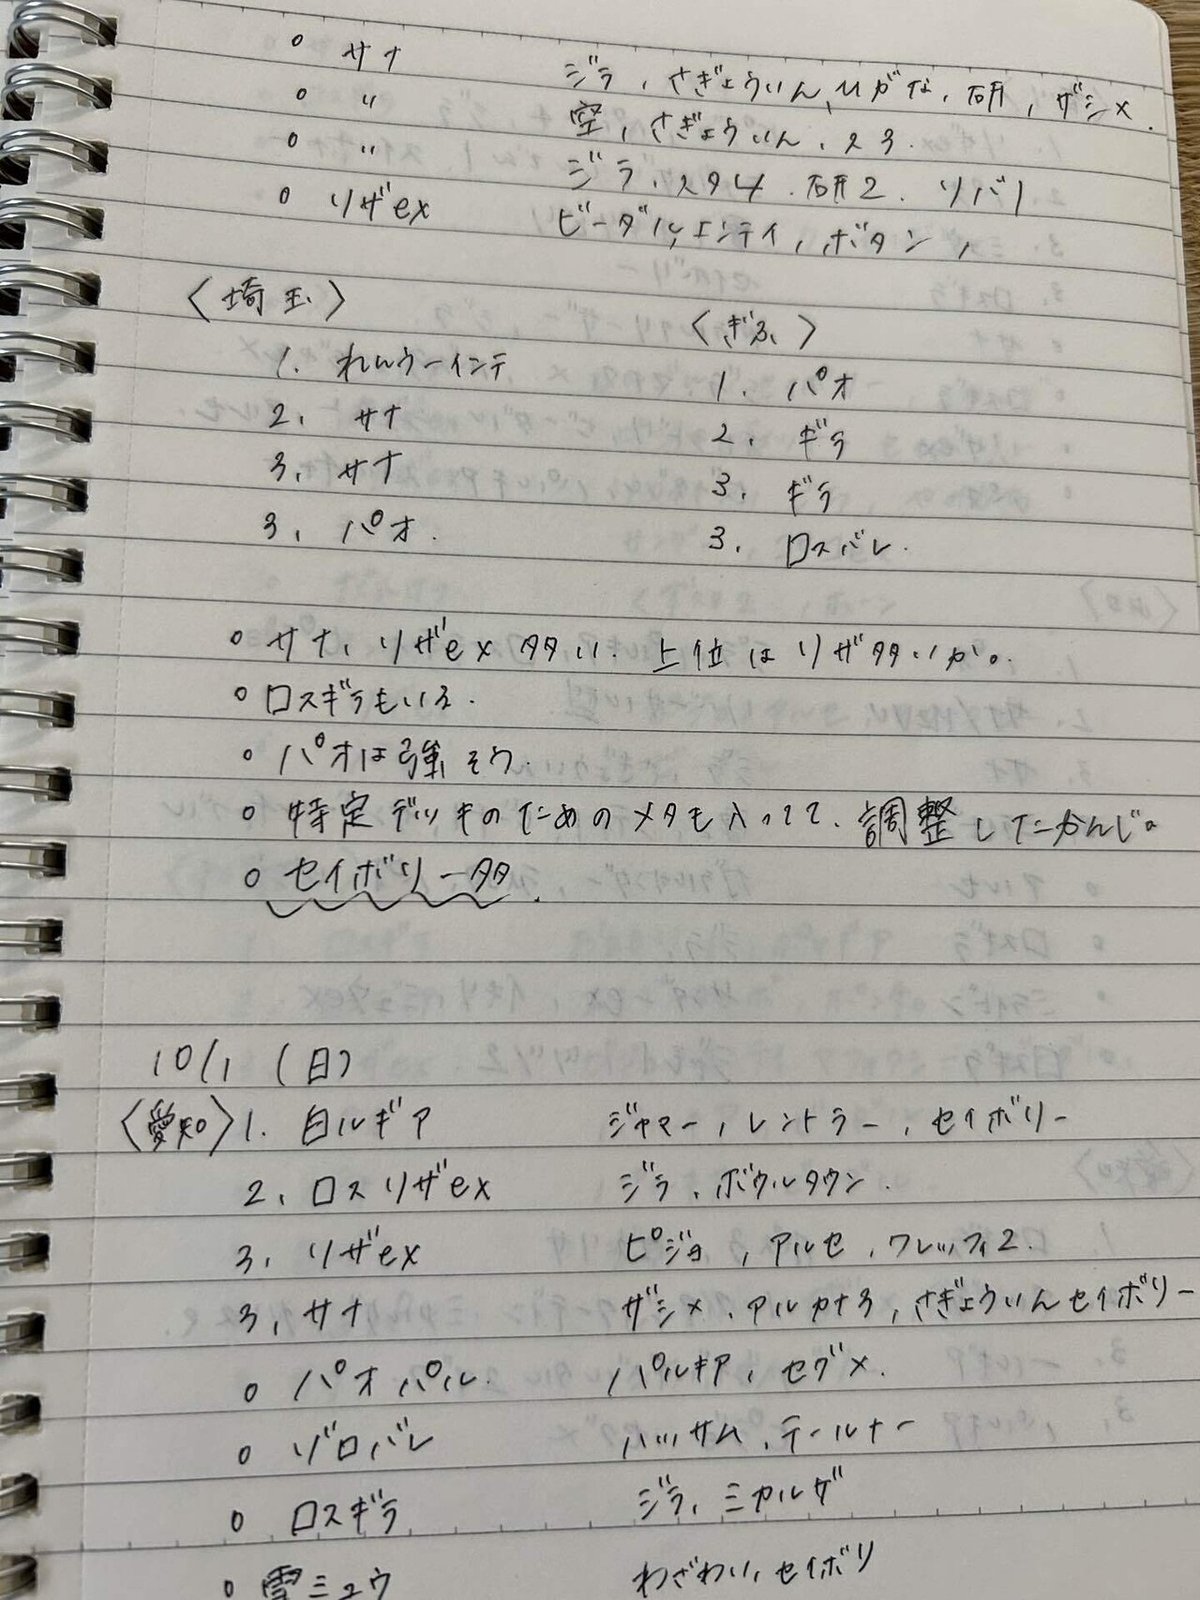 ○ サナ ジラ, さぎょういん, ひがな, 研, ザシメ.
○ 〃 空, さぎょういん, ス3.
○ 〃 ジラ, スタ4, 研2. リバ1
○ リザex ビーダル, エンテイ, ボタン,
〈埼玉〉
1. れんウーインテ
2. サナ
3. サナ
3. パオ.
〈ぎふ〉
1. パオ
2. ギラ
3. ギラ
3. ロスバレ.
○ サナ, リザex 多い. 上位は リザ多いか。
○ ロスギラもいる.
○ パオは強そう.
○ 特定デッキのためのメタも入ってて、調整したかんじ。
○ セイボリー多.
10/1 (日)
〈愛知〉1. 白ルギア ジャマー, レントラー, セイボリー
2. ロスリザex ジラ, ボウルタウン.
3. リザex ピジョ, アルセ, ワレッフィ2.
3. サナ ザシメ, アルカナ3, さぎょういんセイボリー
○ パオパル. パルキア, セグメ.
○ ゾロバレ ハッサム, テールナー
○ ロスギラ ジラ, ミカルゲ
○ 雪ミュウ わざわい, セイボリ